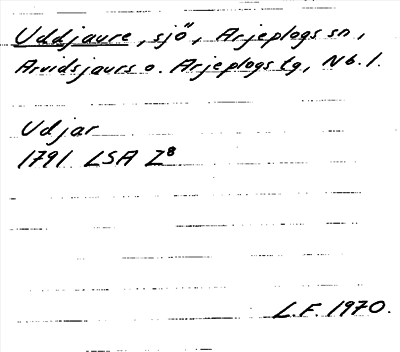 Uddjaure, sjö, Arjeplogs sn,
Arvidsjaurs o. Arjeplogs tg, Nb. l.
Udjar
1791 LSA Z8
L.F. 1970.